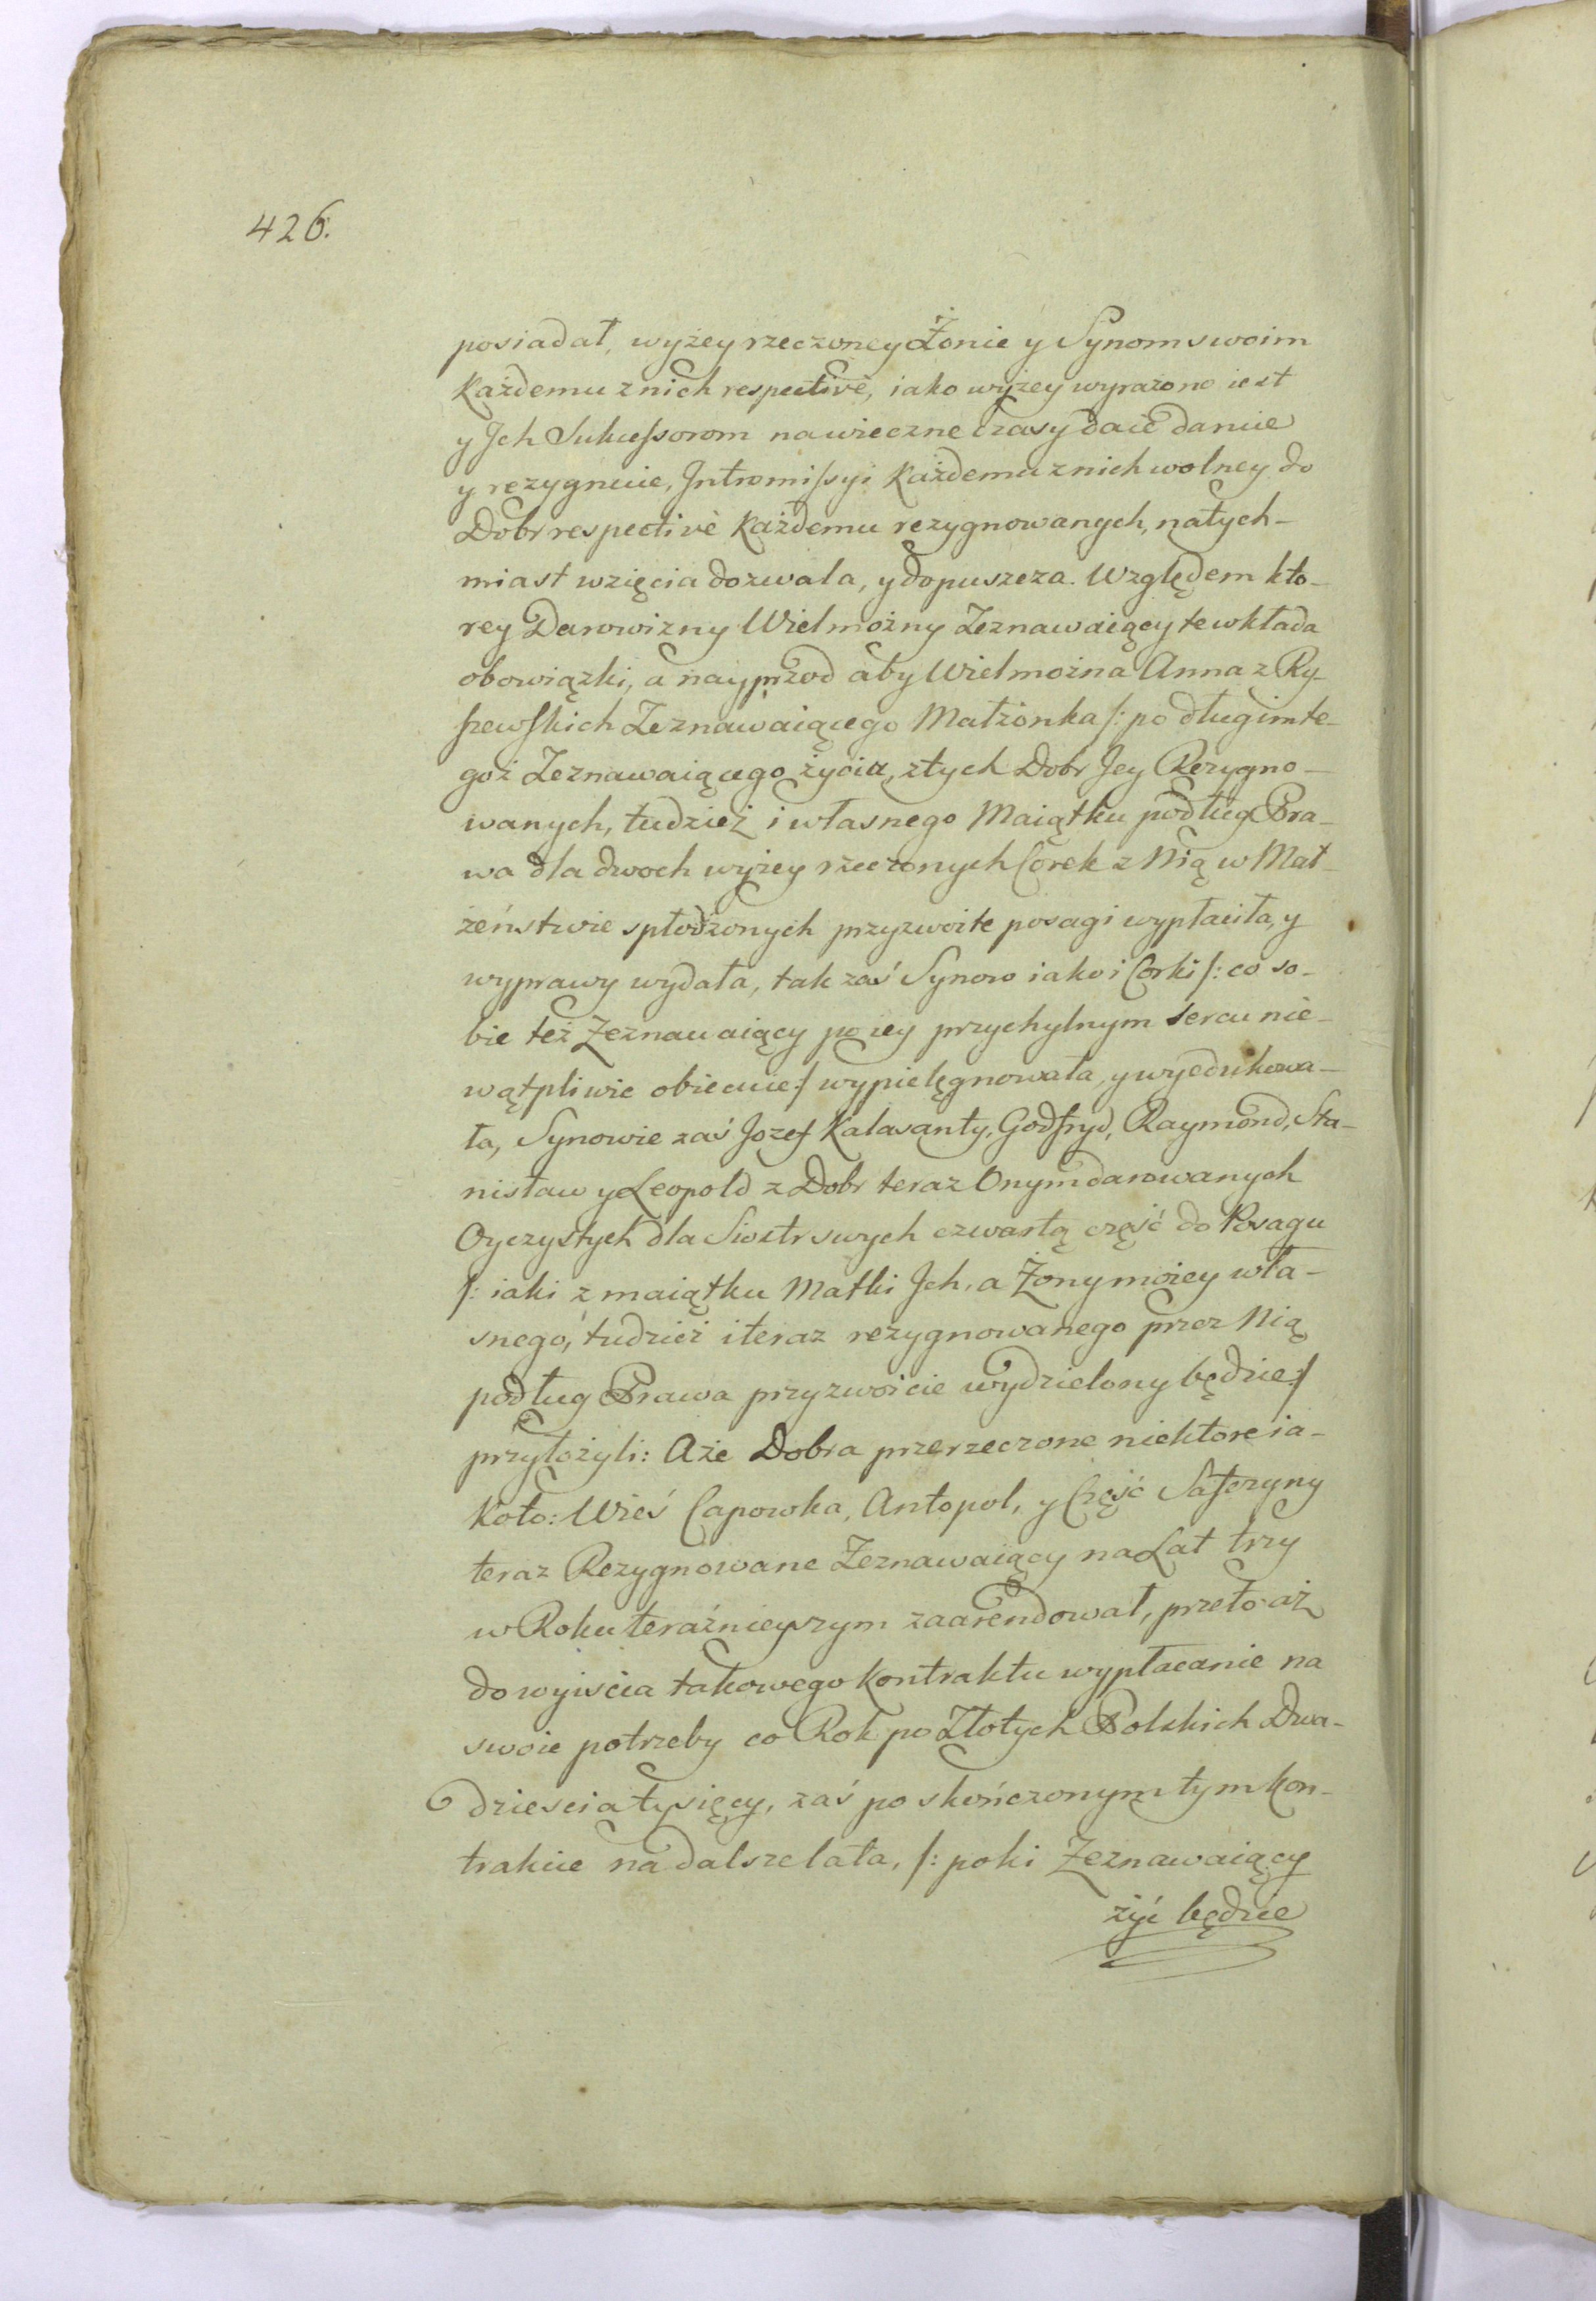 426.
posiadał, wyżey rzeczoney Żonie y Synom swoim
Każdemu z nich respectivè, iako wyżey wyrażono iest
y Jch Sukcessorom na wieczne czasy daie daruie
y rezygnuie, Jntromissyi Każdemu z nich wolney do
Dobr respectivè Każdemu rezygnowanych, natych-
miast wzięcia dozwala, y dopuszcza. Względem kto-
rey Darowizny Wielmożny Zeznawaiący te wkłada
obowiązki, a nayprzod aby Wielmożna Anna z Ry-
szewskich Zeznawaiącego Małżonka /: po długim te-
goż Zeznawaiącego życia, z tych Dobr Jey Rezygno-
wanych, tudzież i własnego Maiątku podług Pra-
wa dla dwoch wyżey rzeczonych Corek z Nią w Mał-
żeństwie spłodzonych przyzwoite posagi wypłaciła, y
wyprawy wydała, tak zaś Synow iako i Corki /: co so-
bie też Zeznawaiący po iey przychylnym sercu nie-
wątpliwie obiecuie :/ wypielęgnowała, y wyedukowa-
ła, Synowie zaś Jozef Kalasanty, Godfryd, Raymond, Sta-
nisław y Leopold z Dobr teraz Onym darowanych
Oyczystych dla Siostr swych czwartą część do Posagu
/: iaki z maiątku Matki Jch, a Żony moiey wła-
snego, tudzież i teraz rezygnowanego przez Nią
podług Prawa przyzwoicie wydzielony będzie :/
przyłożyli: Aże Dobra przerzeczone niektore ia-
koto: Wieś Capowka, Antopol, y Część Saferyny
teraz Rezygnowane Zeznawaiący na Lat trzy
w Roku teraźnieyszym zaarendował, przeto aż
do wyiścia takowego Kontraktu wypłacanie na
swoie potrzeby co Rok po Złotych Polskich Dwa-
dziescia tysięcy, zaś po skończonym tym Kon-
trakcie na dalsze lata, /: poki Zeznawaiący
żyć będzie